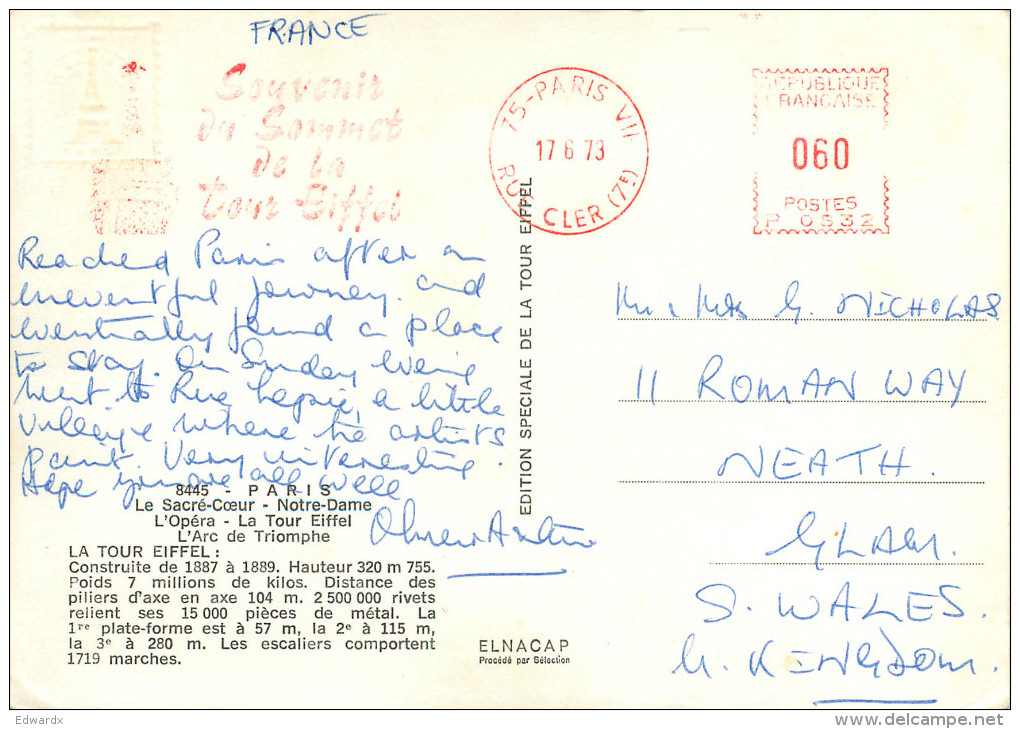 FRANCE
Souvenir
du Sommet
de la
tour Eiffel
75-PARIS VII
17 6 73
RUE CLER (75)
REPUBLIQUE
FRANCAISE
060
POSTES
P 0832
Reached Paris after an
uneventful journey. and
eventually found a place
to stay. On Sunday evening
went to Rue Lepic, a little
village where the artists
paint. Very interesting.
Hope you are all well
8445 - PARIS
Le Sacré-Cœur - Notre-Dame
L'Opéra - La Tour Eiffel
L'Arc de Triomphe
LA TOUR EIFFEL :
Construite de 1887 à 1889. Hauteur 320 m 755.
Poids 7 millions de kilos. Distance des
piliers d'axe en axe 104 m. 2 500 000 rivets
relient ses 15 000 pièces de métal. La
1re plate-forme est à 57 m, la 2e à 115 m,
la 3e à 280 m. Les escaliers comportent
1719 marches.
EDITION SPECIALE DE LA TOUR EIFFEL
ELNACAP
Procédé par Sélection
Mr & Mrs G. NICHOLAS
11 ROMAN WAY
NEATH.
GLAM.
S. WALES.
U. KINGDOM.
Edwardx
www.delcampe.net